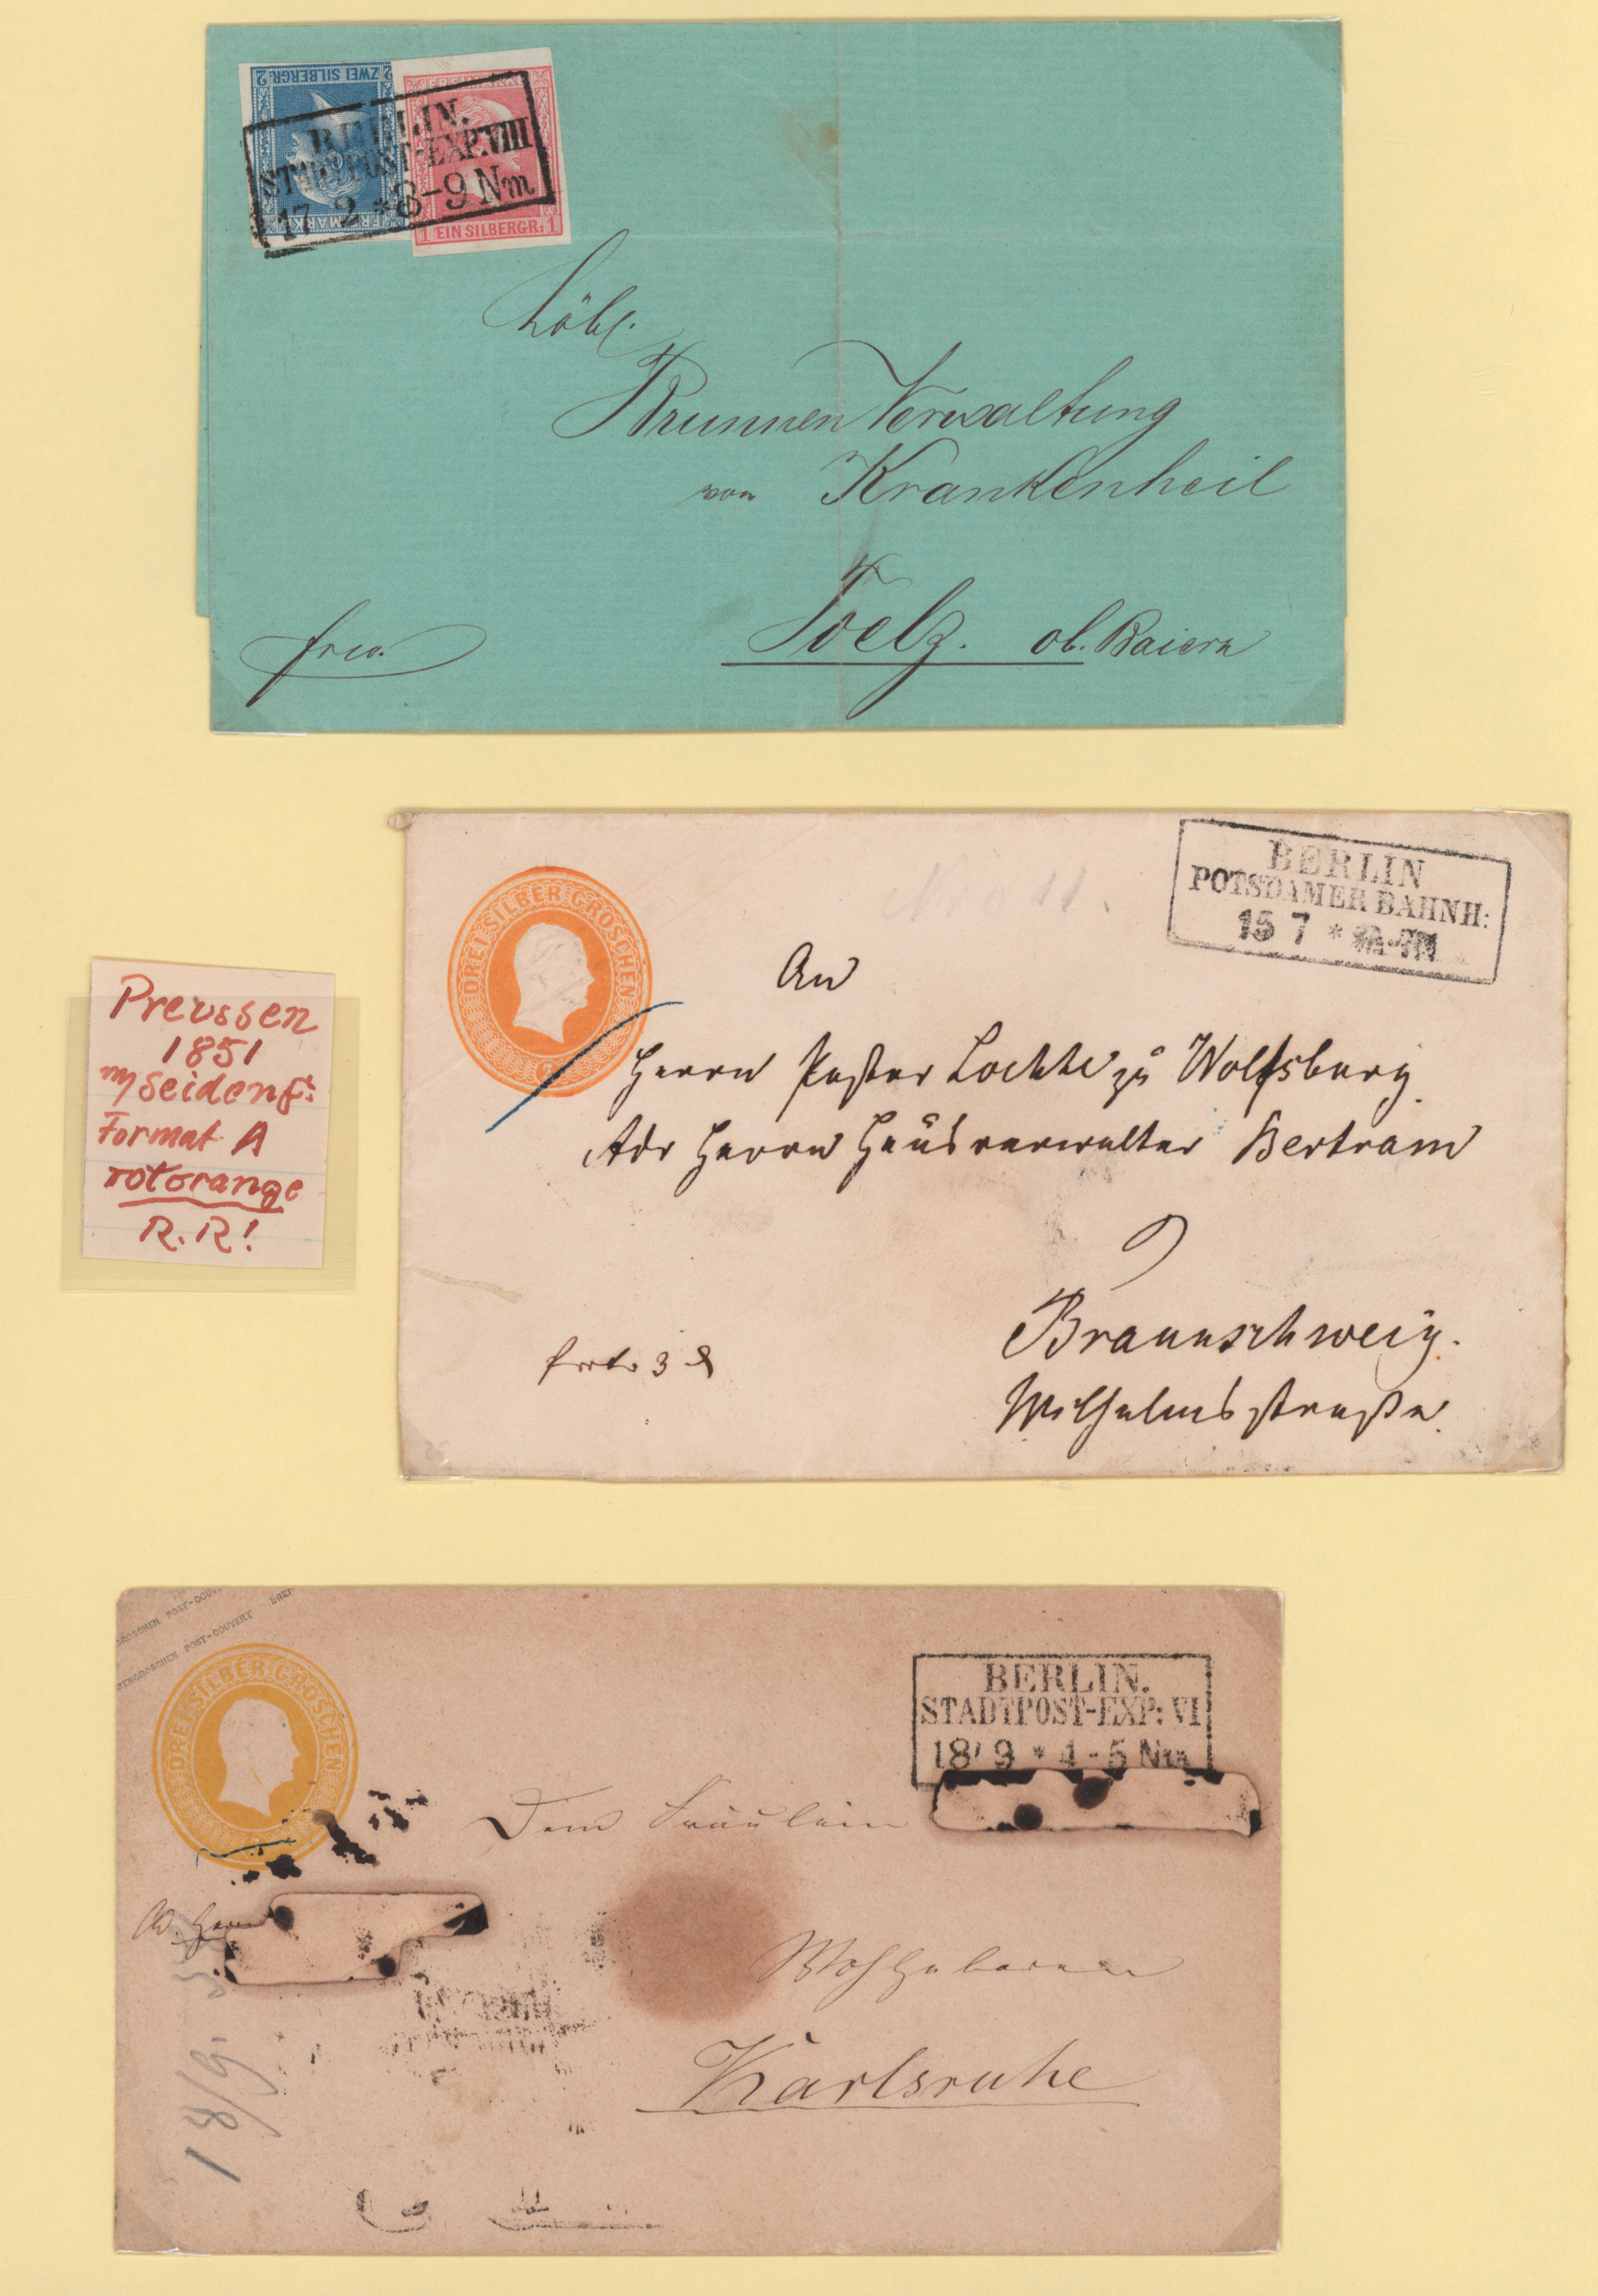 ZWEI SILBERGR.
2
FREIMARKE
1 EIN SILBERGR. 1
BERLIN.
STADTPOST-EXP.VIII
17 2 * 8-9 Nm
Löbl.
Brunnen Verwaltung
von Krankenheil
Toelz. ob. Baiern
frco.
DREI SILBER GROSCHEN
BERLIN
POTSDAMER BAHNH:
15 7 *
An
Herrn Pastor Lochte zu Wolfsburg
Adr Herrn Hausverwalter Bertram
Braunschweig.
Wilhelmsstraße.
3
Preussen
1851
m/Seidenf:
Format A
rotorange
R.R!
GROSCHEN POST-COUV
BERGROSCHEN POST-COUVERT DREI
DREI SILBER GROSCHEN
BERLIN.
STADTPOST-EXP: VI
18 9 * 4-5 Nm
Dem Fräulein
Herrn
Wohlgeboren
Karlsruhe
18/9.